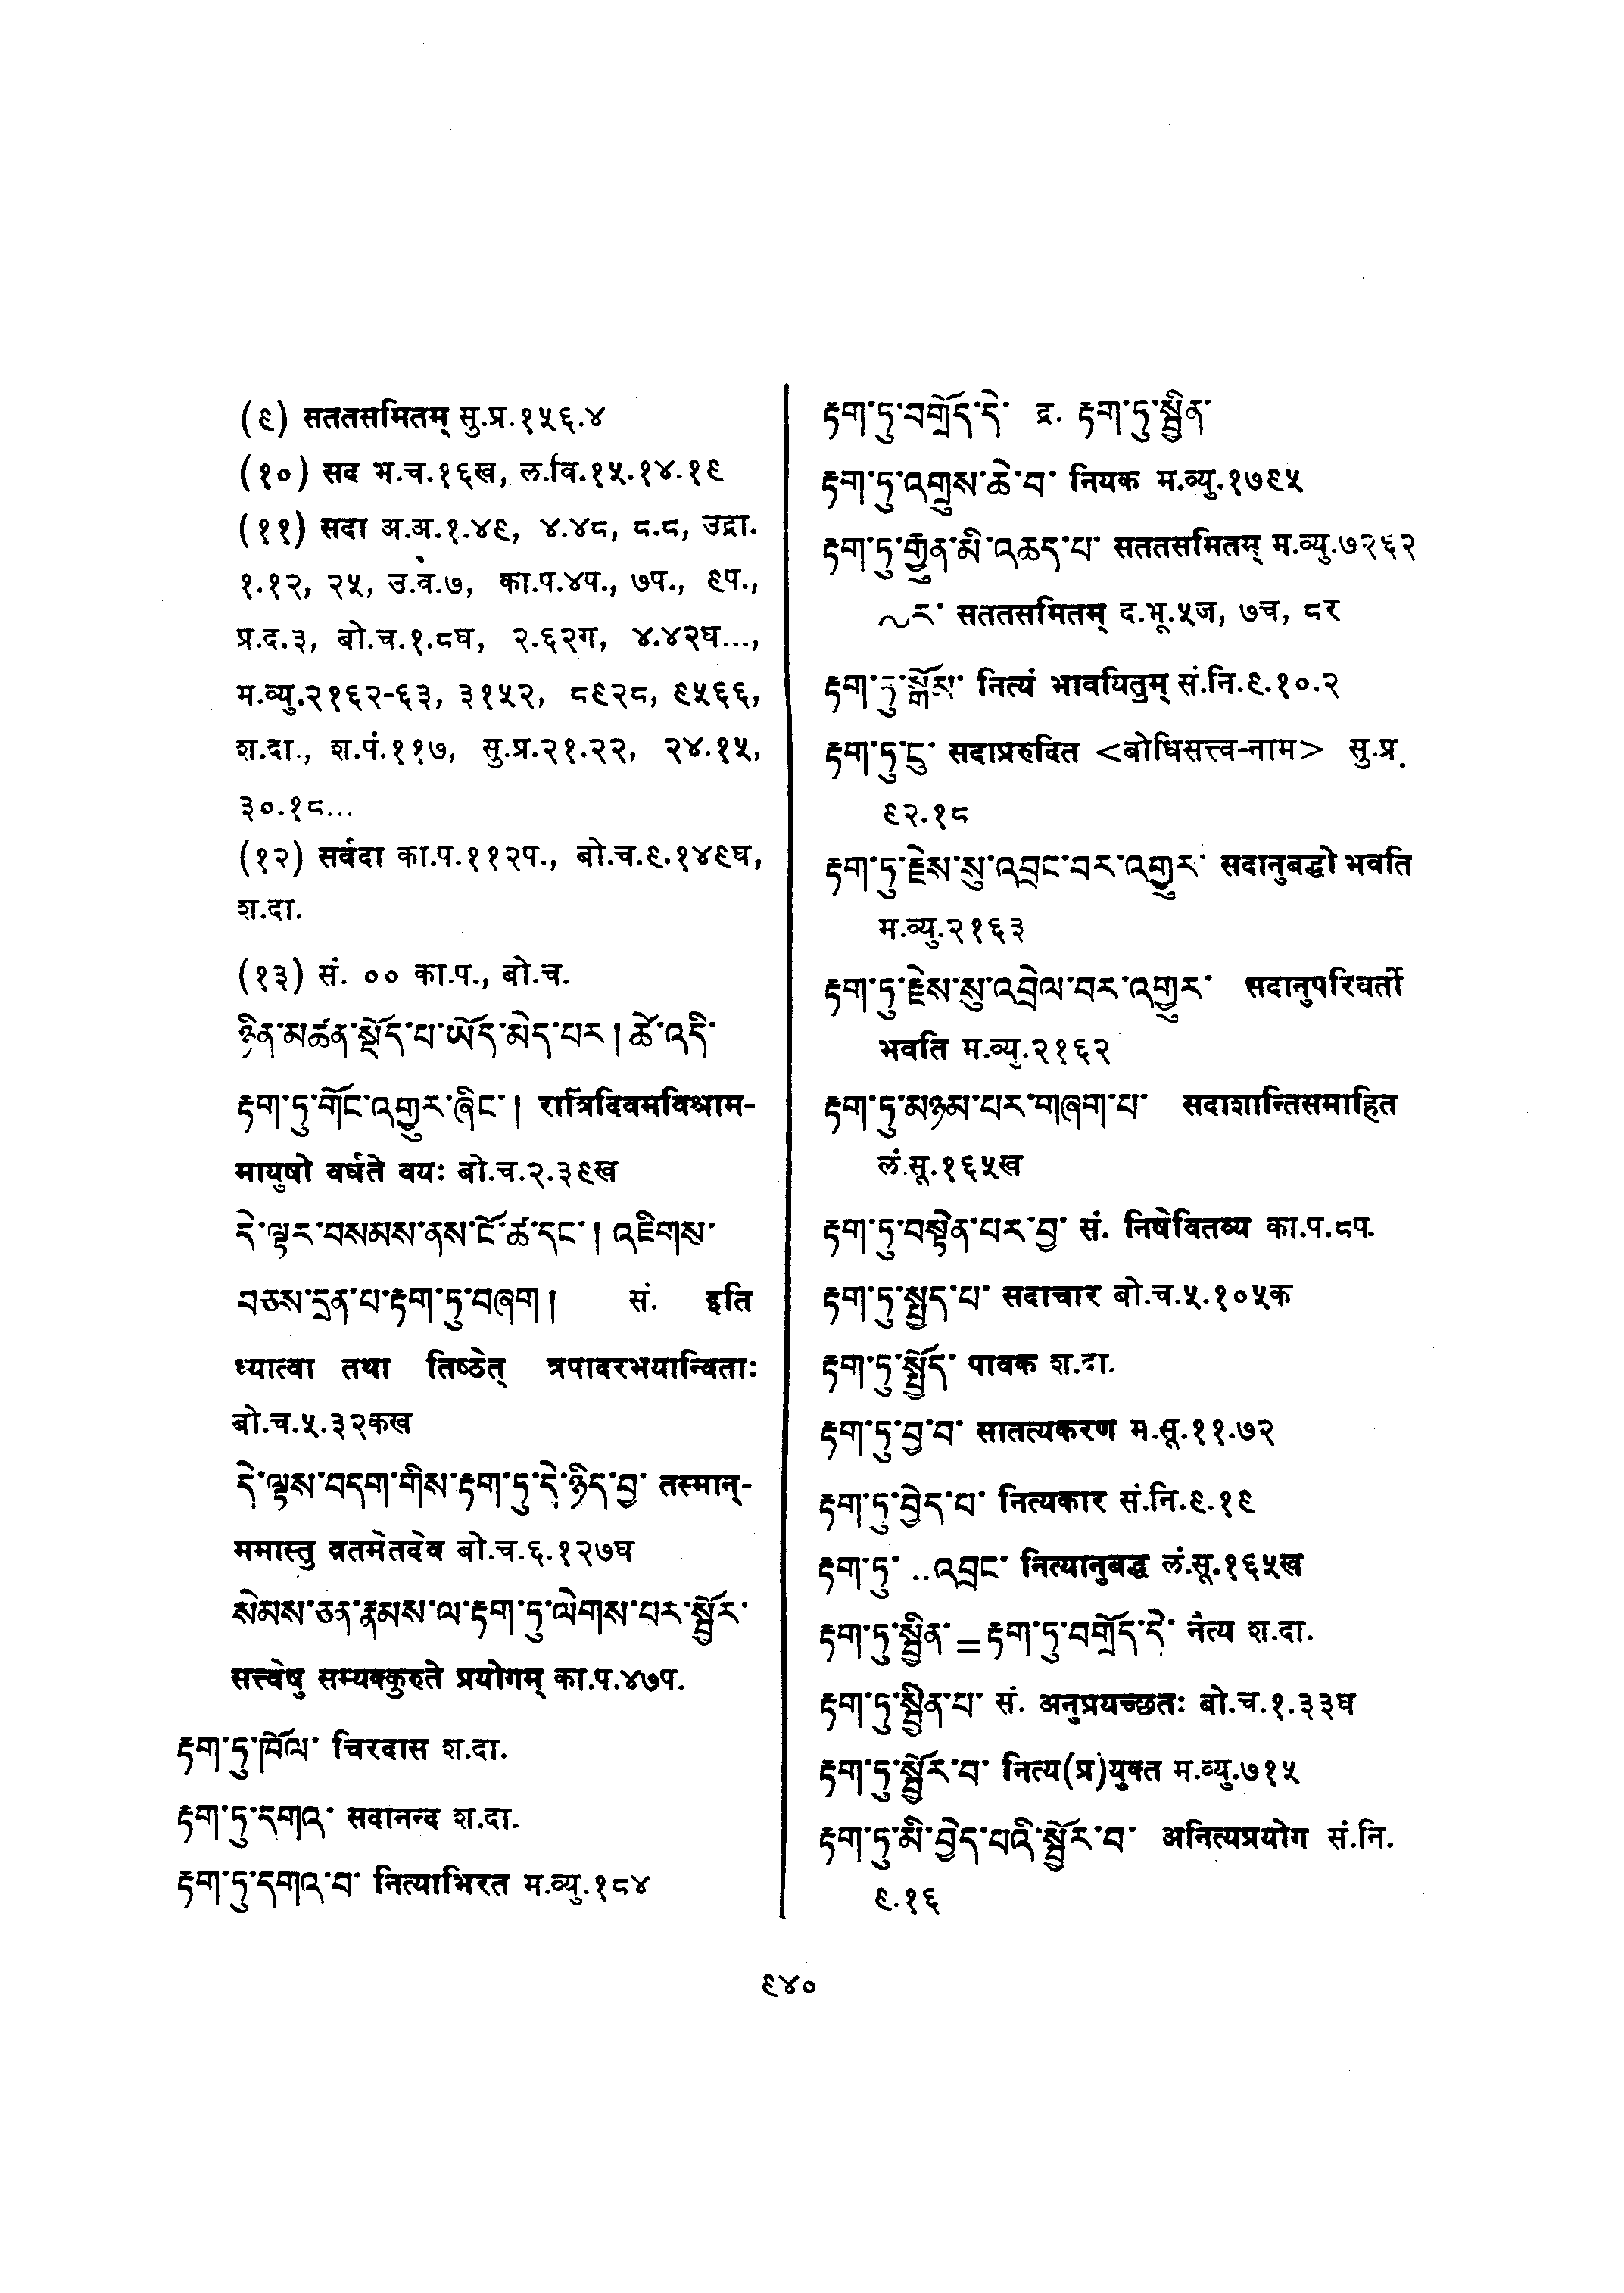 (९) सततसमितम् सु.प्र.१५६.४
(१०) सद भ.च.१६ख, ल.वि.१५.१४.१९
(११) सदा अ.अ.१.४९, ४.४८, ८.८, उद्रा.
१.१२, २५, उ.वं.७, का.प.४प., ७प., ९प.,
प्र.द.३, बो.च.१.८घ, २.६२ग, ४.४२घ...,
म.व्यु.२१६२-६३, ३१५२, ८९२८, ९५६६,
श.दा., श.पं.११७, सु.प्र.२१.२२, २४.१५,
३०.१८...
(१२) सर्वदा का.प.११२प., बो.च.९.१४९घ,
श.दा.
(१३) सं. ०० का.प., बो.च.
ཉིན་མཚན་སྡོད་པ་ཡོད་མེད་པར། ཚེ་འདི་
རྟག་ཏུ་གོང་འགྱུར་ཞིང་། रात्रिंदिवमविश्राम-
मायुषो वर्धते वयः बो.च.२.३९ख
དེ་ལྟར་བསམས་ནས་ངོ་ཚ་དང་། འཇིགས་
བཅས་དྲན་པ་རྟག་ཏུ་བཞག། सं. इति
ध्यात्वा तथा तिष्ठेत् त्रपादरभयान्विताः
बो.च.५.३२कख
དེ་ལྟས་བདག་གིས་རྟག་ཏུ་དེ་ཉིད་བྱ་ तस्मान्-
ममास्तु व्रतमेतदेव बो.च.६.१२७घ
སེམས་ཅན་རྣམས་ལ་རྟག་ཏུ་ལེགས་པར་སྦྱོར་
सत्त्वेषु सम्यक्कुरुते प्रयोगम् का.प.४७प.
རྟག་ཏུ་ཁོལ་ चिरदास श.दा.
རྟག་ཏུ་དགའ་ सदानन्द श.दा.
རྟག་ཏུ་དགའ་བ་ नित्याभिरत म.व्यु.१८४
རྟག་ཏུ་བགྲོད་དེ་ द्र. རྟག་ཏུ་སྦྱིན་
རྟག་ཏུ་འགྲུས་ཆེ་བ་ नियक म.व्यु.१७९५
རྟག་ཏུ་རྒྱུན་མི་འཆད་པ་ सततसमितम् म.व्यु.७२६२
~ར་ सततसमितम् द.भू.५ज, ७च, ८र
རྟག་ཏུ་སྒོམ་ नित्यं भावयितुम् सं.नि.९.१०.२
རྟག་ཏུ་ངུ་ सदाप्ररुदित <बोधिसत्त्व-नाम> सु.प्र.
९२.१८
རྟག་ཏུ་རྗེས་སུ་འབྲང་བར་འགྱུར་ सदानुबद्धो भवति
म.व्यु.२१६३
རྟག་ཏུ་རྗེས་སུ་འབྲེལ་བར་འགྱུར་ सदानुपरिवर्ती
भवति म.व्यु.२१६२
རྟག་ཏུ་མཉམ་པར་གཞག་པ་ सदाशान्तिसमाहित
लं.सू.१६५ख
རྟག་ཏུ་བསྟེན་པར་བྱ་ सं. निषेवितव्य का.प.८प.
རྟག་ཏུ་སྤྱད་པ་ सदाचार बो.च.५.१०५क
རྟག་ཏུ་སྤྱོད་ पावक श.दा.
རྟག་ཏུ་བྱ་བ་ सातत्यकरण म.सू.११.७२
རྟག་ཏུ་བྱེད་པ་ नित्यकार सं.नि.९.१९
རྟག་ཏུ་ ..འབྲང་ नित्यानुबद्ध लं.सू.१६५ख
རྟག་ཏུ་སྦྱིན་=རྟག་ཏུ་བགྲོད་དེ་ नंत्य श.दा.
རྟག་ཏུ་སྦྱིན་པ་ सं. अनुप्रयच्छतः बो.च.१.३३घ
རྟག་ཏུ་སྦྱོར་བ་ नित्य(प्र)युक्त म.व्यु.७१५
རྟག་ཏུ་མི་བྱེད་པའི་སྦྱོར་བ་ अनित्यप्रयोग सं.नि.
९.१६
९४०